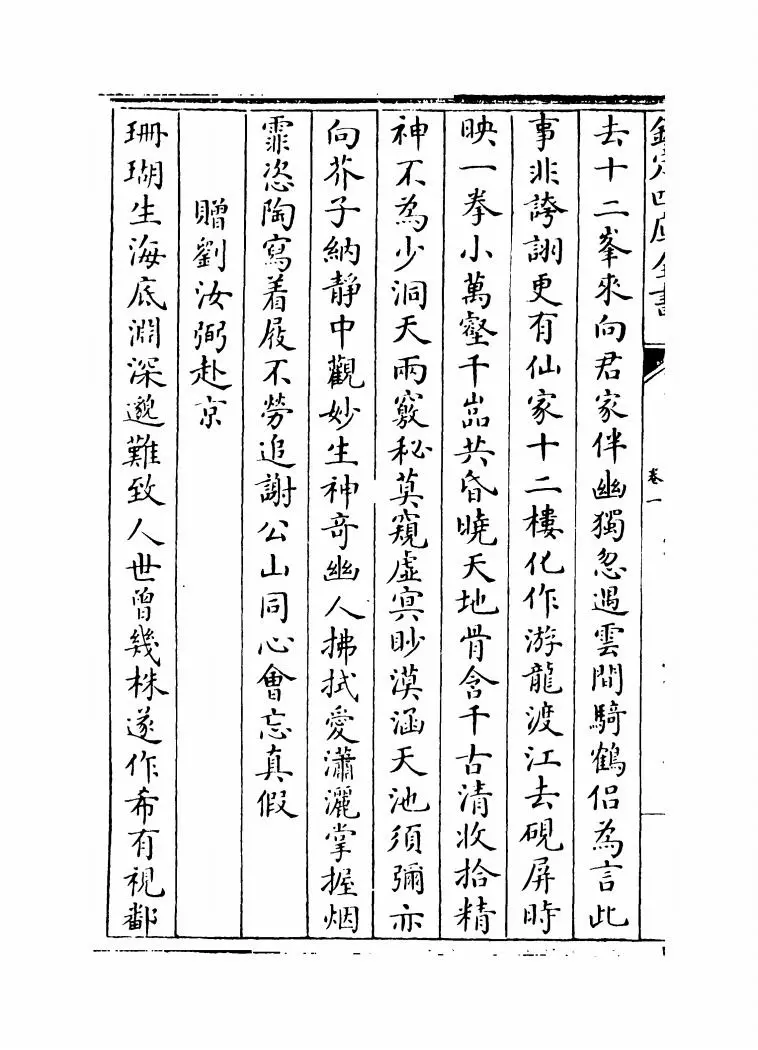 欽定四庫全書
卷一
去十二峯來向君家伴幽獨忽遇雲間騎鶴侶為言此
事非誇詡更有仙家十二樓化作游龍渡江去硯屏時
映一拳小萬壑千嵓共昏曉天地骨含千古清收拾精
神不為少洞天兩竅秘莫窺虛㝠眇漠涵天池須彌亦
向芥子納靜中觀妙生神奇幽人拂拭愛瀟灑掌握烟
霏恣陶寫着屐不勞追謝公山同心會忘真假
贈劉汝弼赴京
珊瑚生海底淵深邈難致人世曾幾株遂作希有視鄱